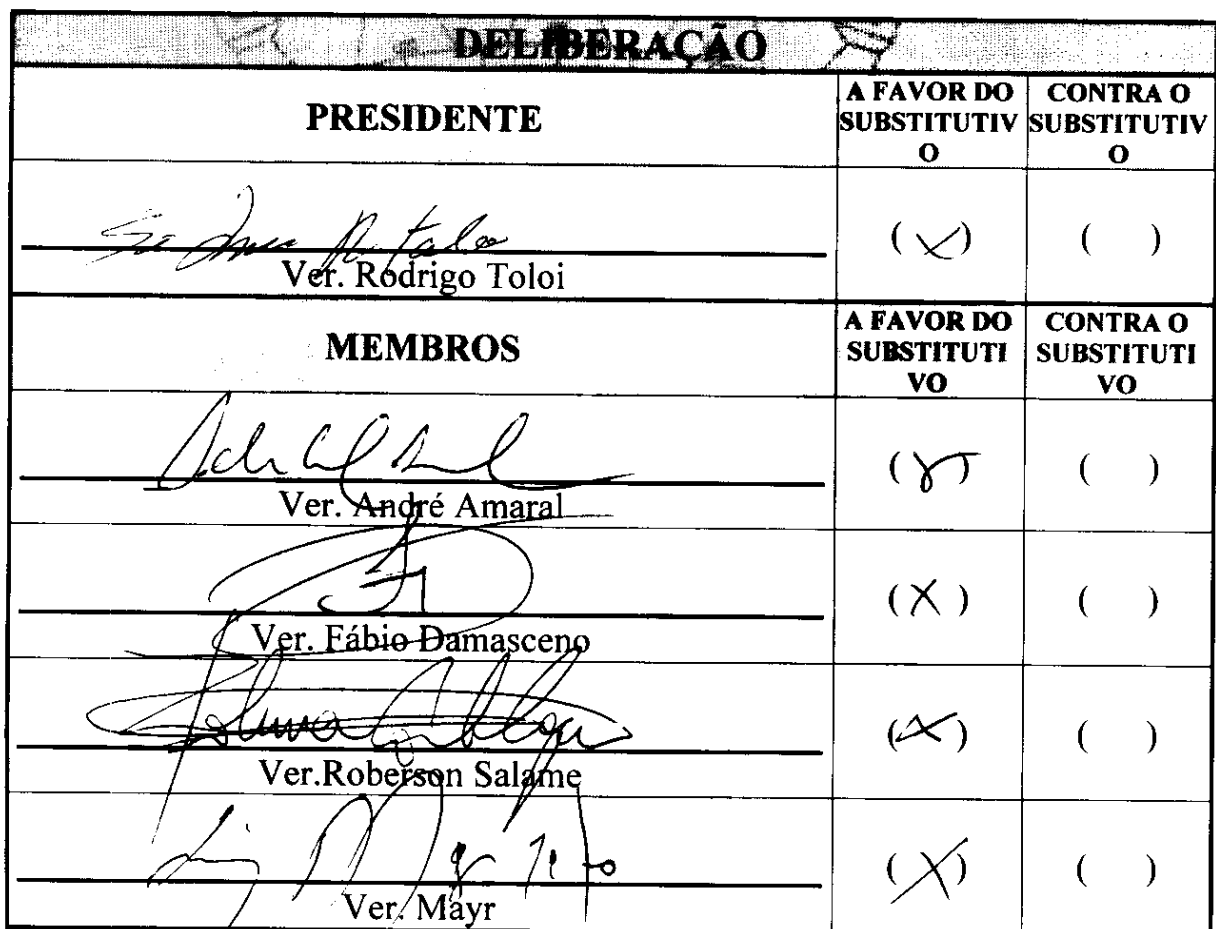 DELIBERAÇÃO
PRESIDENTE
A FAVOR DO
SUBSTITUTIV
O
CONTRA O
SUBSTITUTIV
O
( X )
( )
Ver. Rodrigo Toloi
MEMBROS
A FAVOR DO
SUBSTITUTI
VO
CONTRA O
SUBSTITUTI
VO
( X )
( )
Ver. André Amaral
( X )
( )
Ver. Fábio Damasceno
( X )
( )
Ver.Roberson Salame
( X )
( )
Ver. Mayr